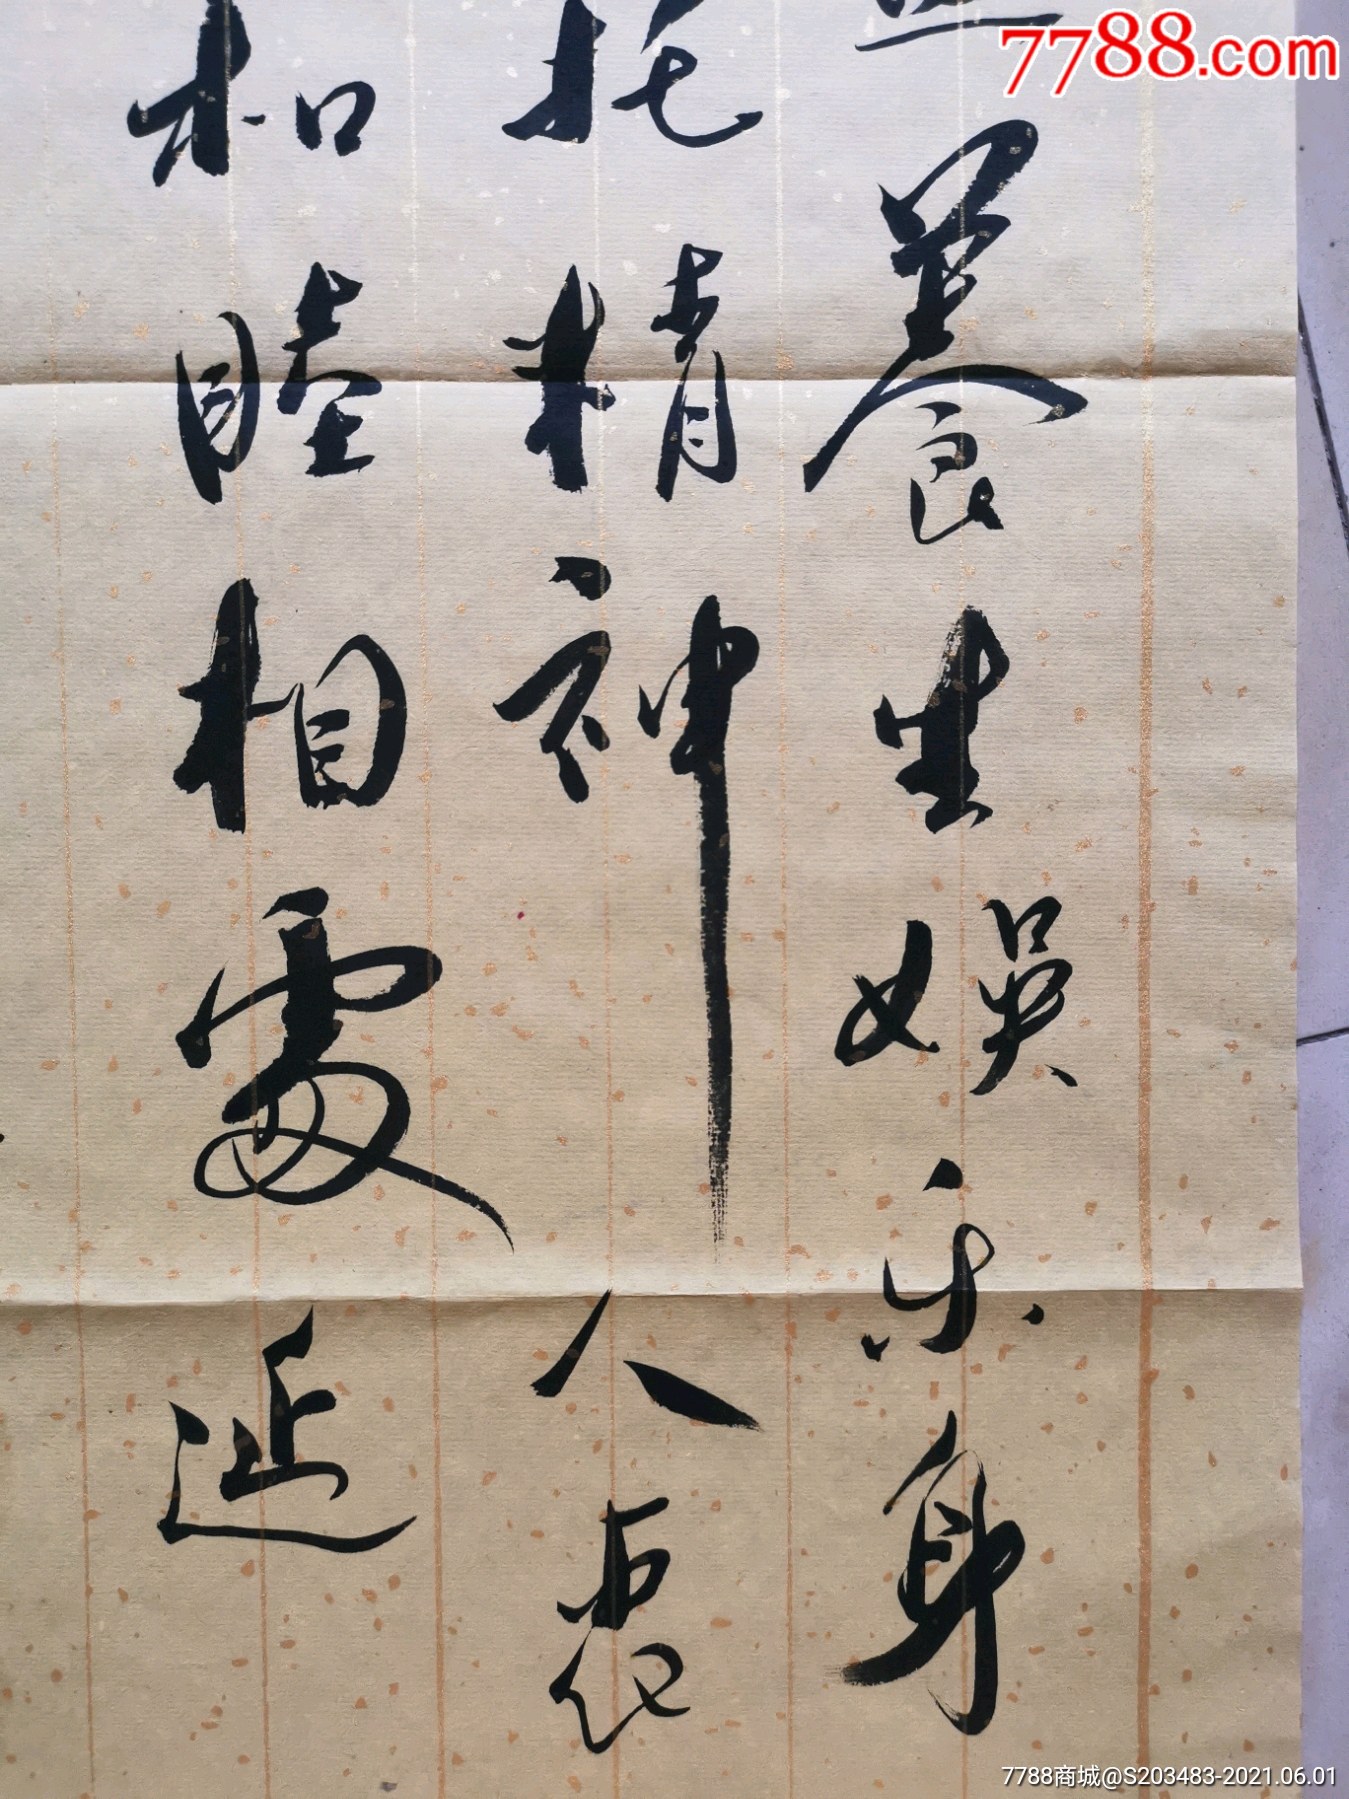 7788.com
養生娱乐身
托精神人衰
和睦相處延
7788商城@S203483-2021.06.01